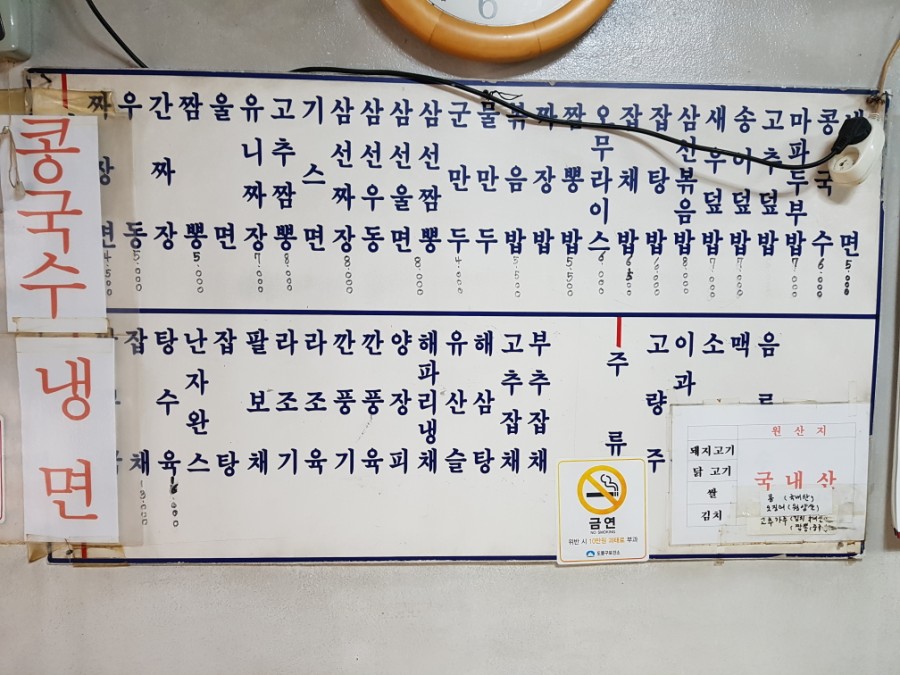 콩국수
냉면
짜장면 4.500
우동 5.000
간짜장
짬뽕 5.000
울면
유니짜장 7.000
고추짬뽕 8.000
기스면
삼선짜장 8.000
삼선우동
삼선울면
삼선짬뽕 8.000
군만두 4.000
물만두
볶음밥 5.500
짜장밥
짬뽕밥 5.500
오무라이스 6.000
잡채밥
잡탕밥
삼선볶음밥 8.000
새우덮밥 7.000
송이덮밥 7.000
고추덮밥
마파두부밥 7.000
콩국수 6.000
냉면 5.000
잡채
탕수육
난자완스
잡탕
팔보채
라조기
라조육
깐풍기
깐풍육
양장피
해파리냉채
유산슬
해삼탕
고추잡채
부추잡채
주류
고량주
이과
소
맥
음료
금연
NO SMOKING
위반 시 10만원 과태료 부과
원산지
돼지고기
닭고기
쌀
김치
국내산